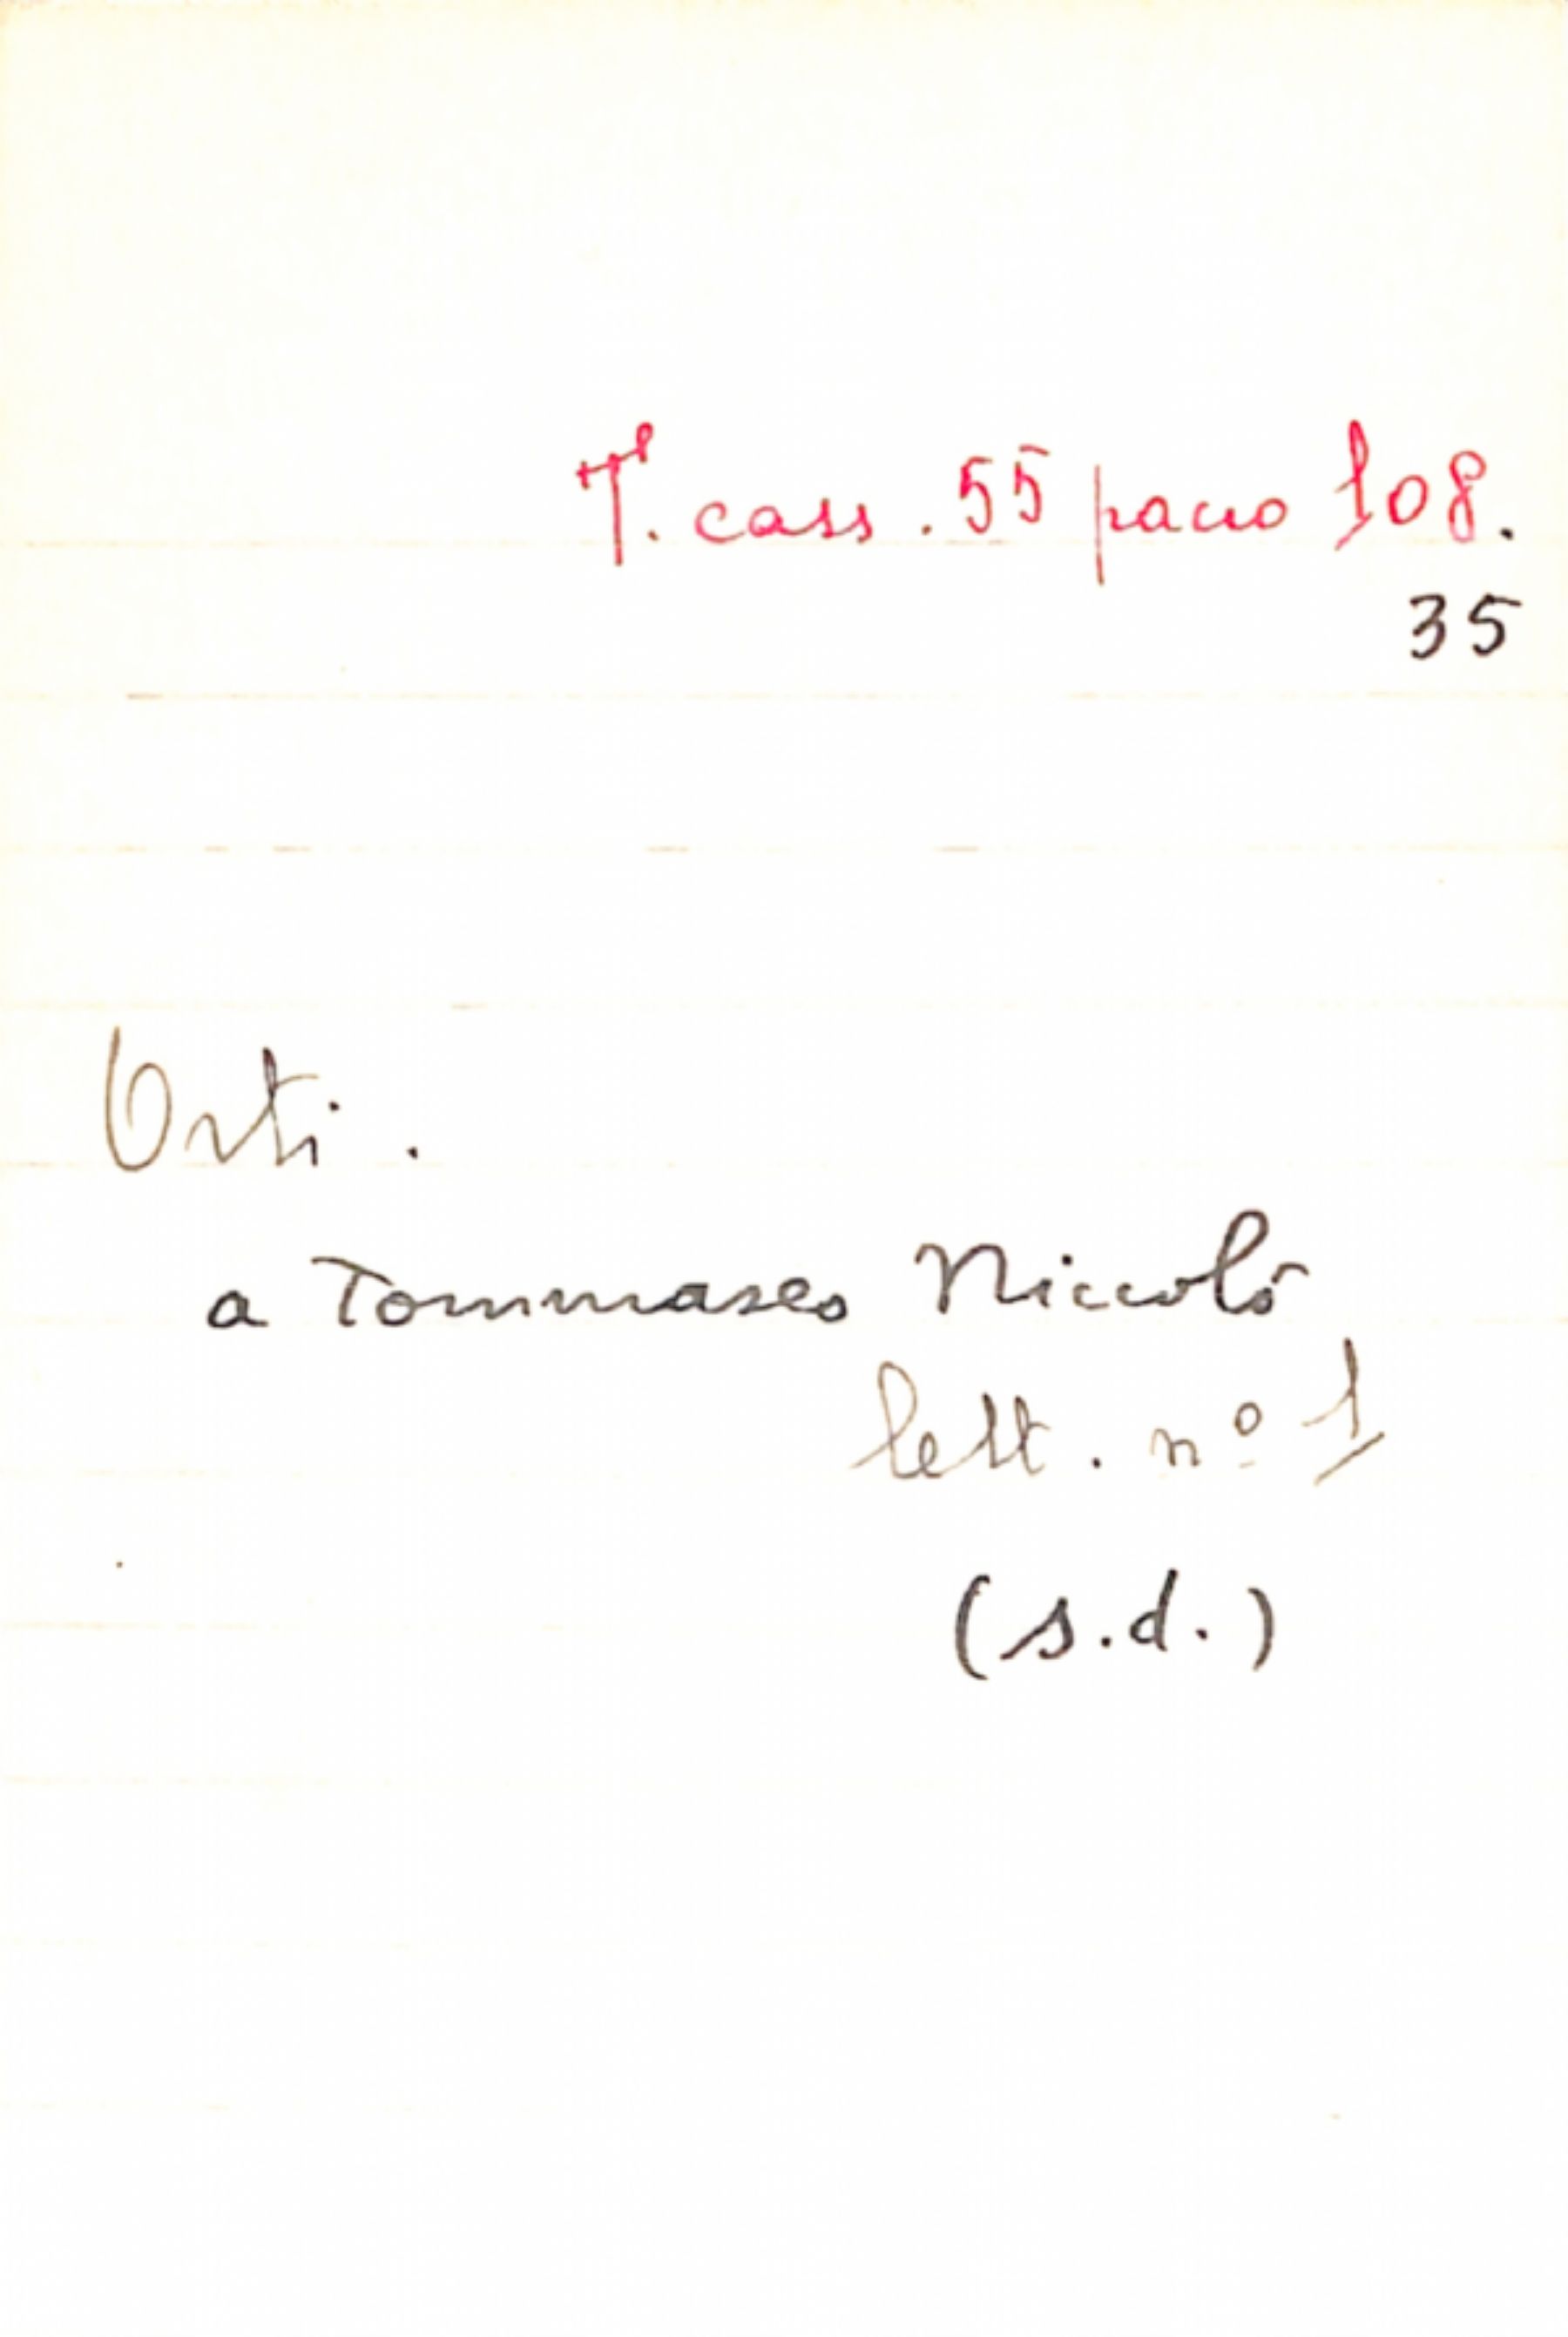 T. cass. 55 pacco 108.
35
Orti.
a Tommaseo Niccolò
lett. nº 1
(s.d.)